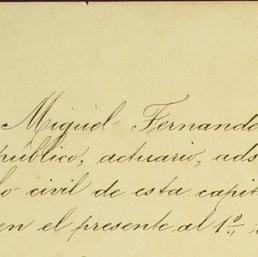 Miguel Fernande
público, actuario, ads
lo civil de esta capit
en el presente al 1º,